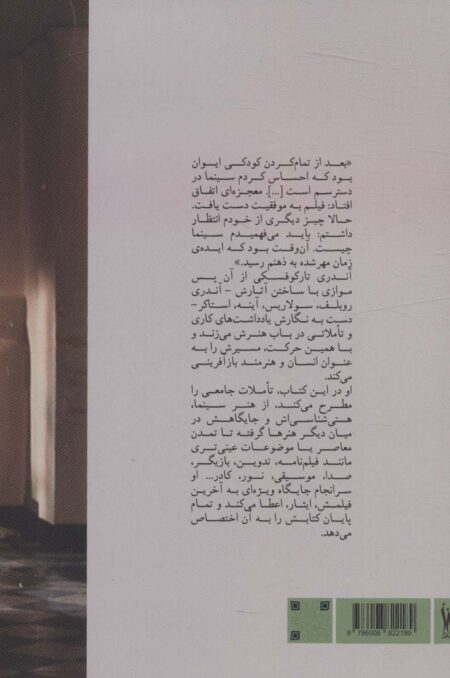 «بعد از تمام‌کردن کودکی ایوان
بود که احساس کردم سینما در
دسترسم است [...]. معجزه‌ای اتفاق
افتاد: فیلم به موفقیت دست یافت.
حالا چیز دیگری از خودم انتظار
داشتم: باید می‌فهمیدم سینما
چیست. آن‌وقت بود که ایده‌ی
زمان مهرشده به ذهنم رسید.»
آندری تارکوفسکی از آن پس
موازی با ساختن آثارش – آندری
روبلف، سولاریس، آینه، استاکر –
دست به نگارش یادداشت‌های کاری
و تأملاتی در باب هنرش می‌زند و
با همین حرکت، مسیرش را به
عنوان انسان و هنرمند بازآفرینی
می‌کند.
او در این کتاب، تأملات جامعی را
مطرح می‌کند، از هنر سینما،
هستی‌شناسی‌اش و جایگاهش در
میان دیگر هنرها گرفته تا تمدن
معاصر یا موضوعات عینی‌تری
مانند فیلم‌نامه، تدوین، بازیگر،
صدا، موسیقی، نور، کادر... او
سرانجام جایگاه ویژه‌ای به آخرین
فیلمش، ایثار، اعطا می‌کند و تمام
پایان کتابش را به آن اختصاص
می‌دهد.
9 786008 822189